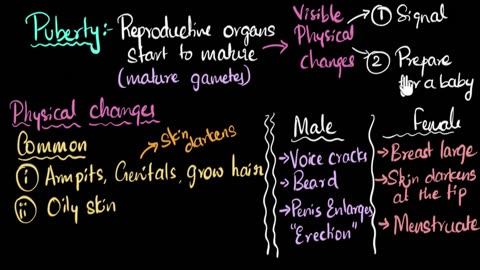 Puberty:- Reproductive organs
start to mature
(mature gametes)
Visible
Physical
changes
① Signal
② Prepare
for a baby
Physical changes
Common
Skin darkens
ⓘ Armpits, Genitals, grow hair
ⓘⓘ Oily skin
Male
→Voice cracks
→Beard
→Penis Enlarges
"Erection"
Female
→Breast large
→Skin darkens
at the tip
→Menstruate